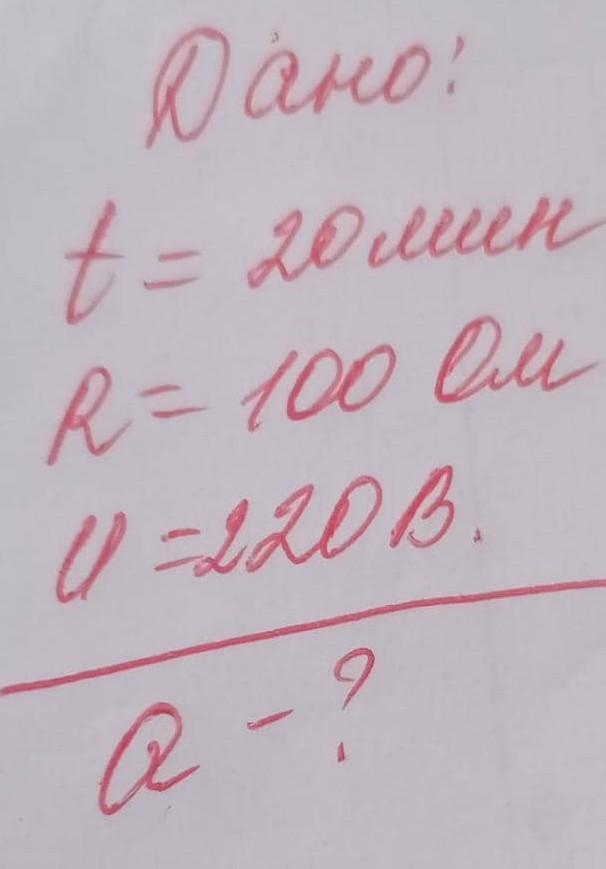 Дано:
t = 20 мин
R = 100 Ом
U = 220 В.
Q - ?